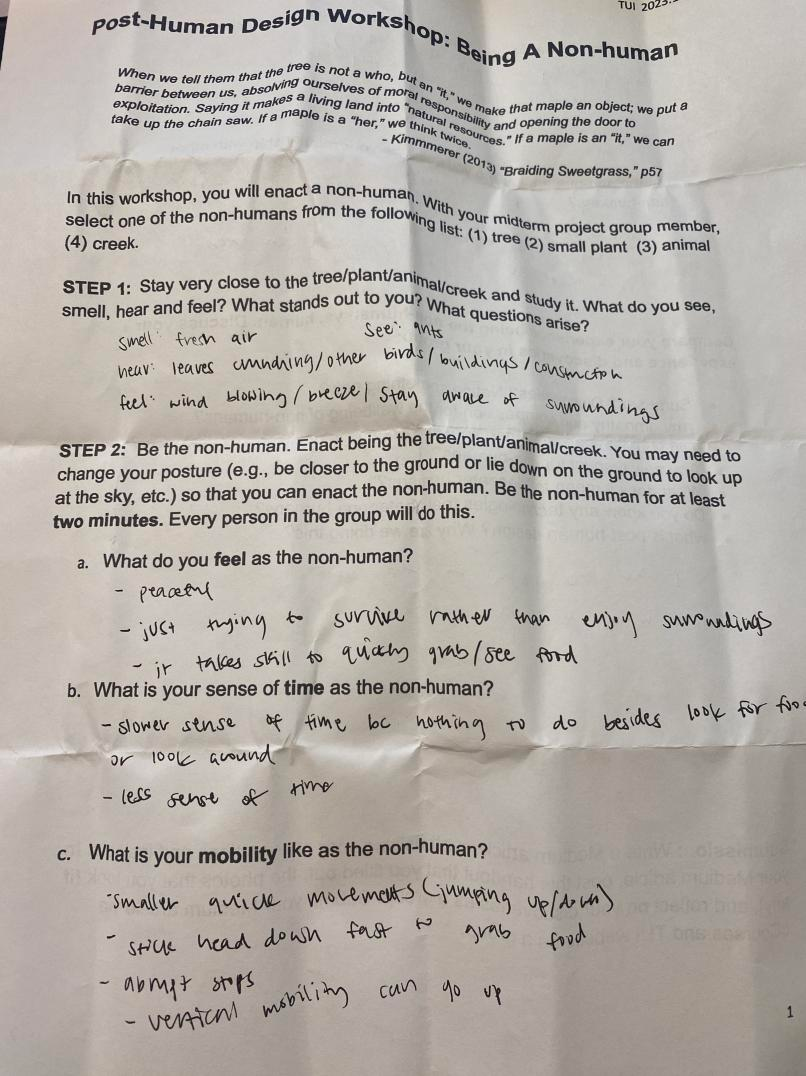 TUI 2023
Post-Human Design Workshop: Being A Non-human
When we tell them that the tree is not a who, but an "it," we make that maple an object; we put a
barrier between us, absolving ourselves of moral responsibility and opening the door to
exploitation. Saying it makes a living land into "natural resources." If a maple is an "it," we can
take up the chain saw. If a maple is a "her," we think twice.
- Kimmmerer (2013) "Braiding Sweetgrass," p57
In this workshop, you will enact a non-human. With your midterm project group member,
select one of the non-humans from the following list: (1) tree (2) small plant (3) animal
(4) creek.
STEP 1: Stay very close to the tree/plant/animal/creek and study it. What do you see,
smell, hear and feel? What stands out to you? What questions arise?
smell: fresh air see: ants
hear: leaves crunching/other birds/buildings/construction
feel: wind blowing/breeze/stay aware of surroundings
STEP 2: Be the non-human. Enact being the tree/plant/animal/creek. You may need to
change your posture (e.g., be closer to the ground or lie down on the ground to look up
at the sky, etc.) so that you can enact the non-human. Be the non-human for at least
two minutes. Every person in the group will do this.
a. What do you feel as the non-human?
- peaceful
- just trying to survive rather than enjoy surroundings
- it takes skill to quickly grab/see food
b. What is your sense of time as the non-human?
- slower sense of time bc nothing to do besides look for foo
or look around
- less sense of time
c. What is your mobility like as the non-human?
- smaller quick movements (jumping up/down)
- stick head down fast to grab food
- abrupt stops
- vertical mobility can go up
1